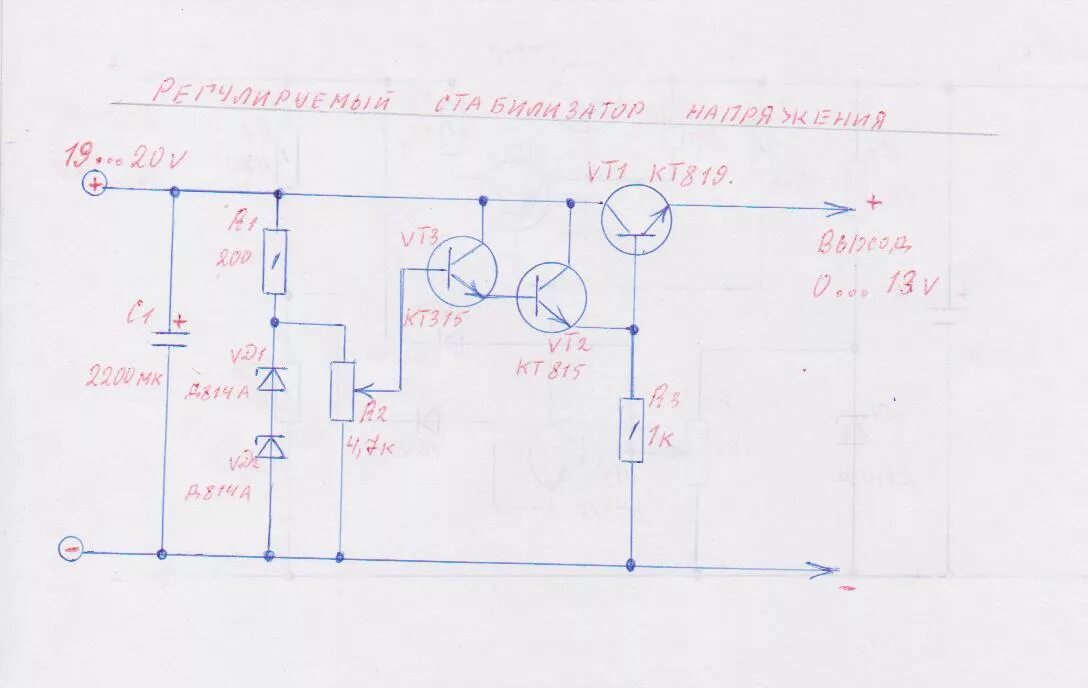 РЕГУЛИРУЕМЫЙ СТАБИЛИЗАТОР НАПРЯЖЕНИЯ
19...20V
+
VT1 КТ819.
+
R1
200
VT3
Выход
0...13V
C1
+
КТ315
VT2
КТ815
2200мк
VD1
Д814А
R2
4,7к
R3
1к
VD2
Д814А
-
-